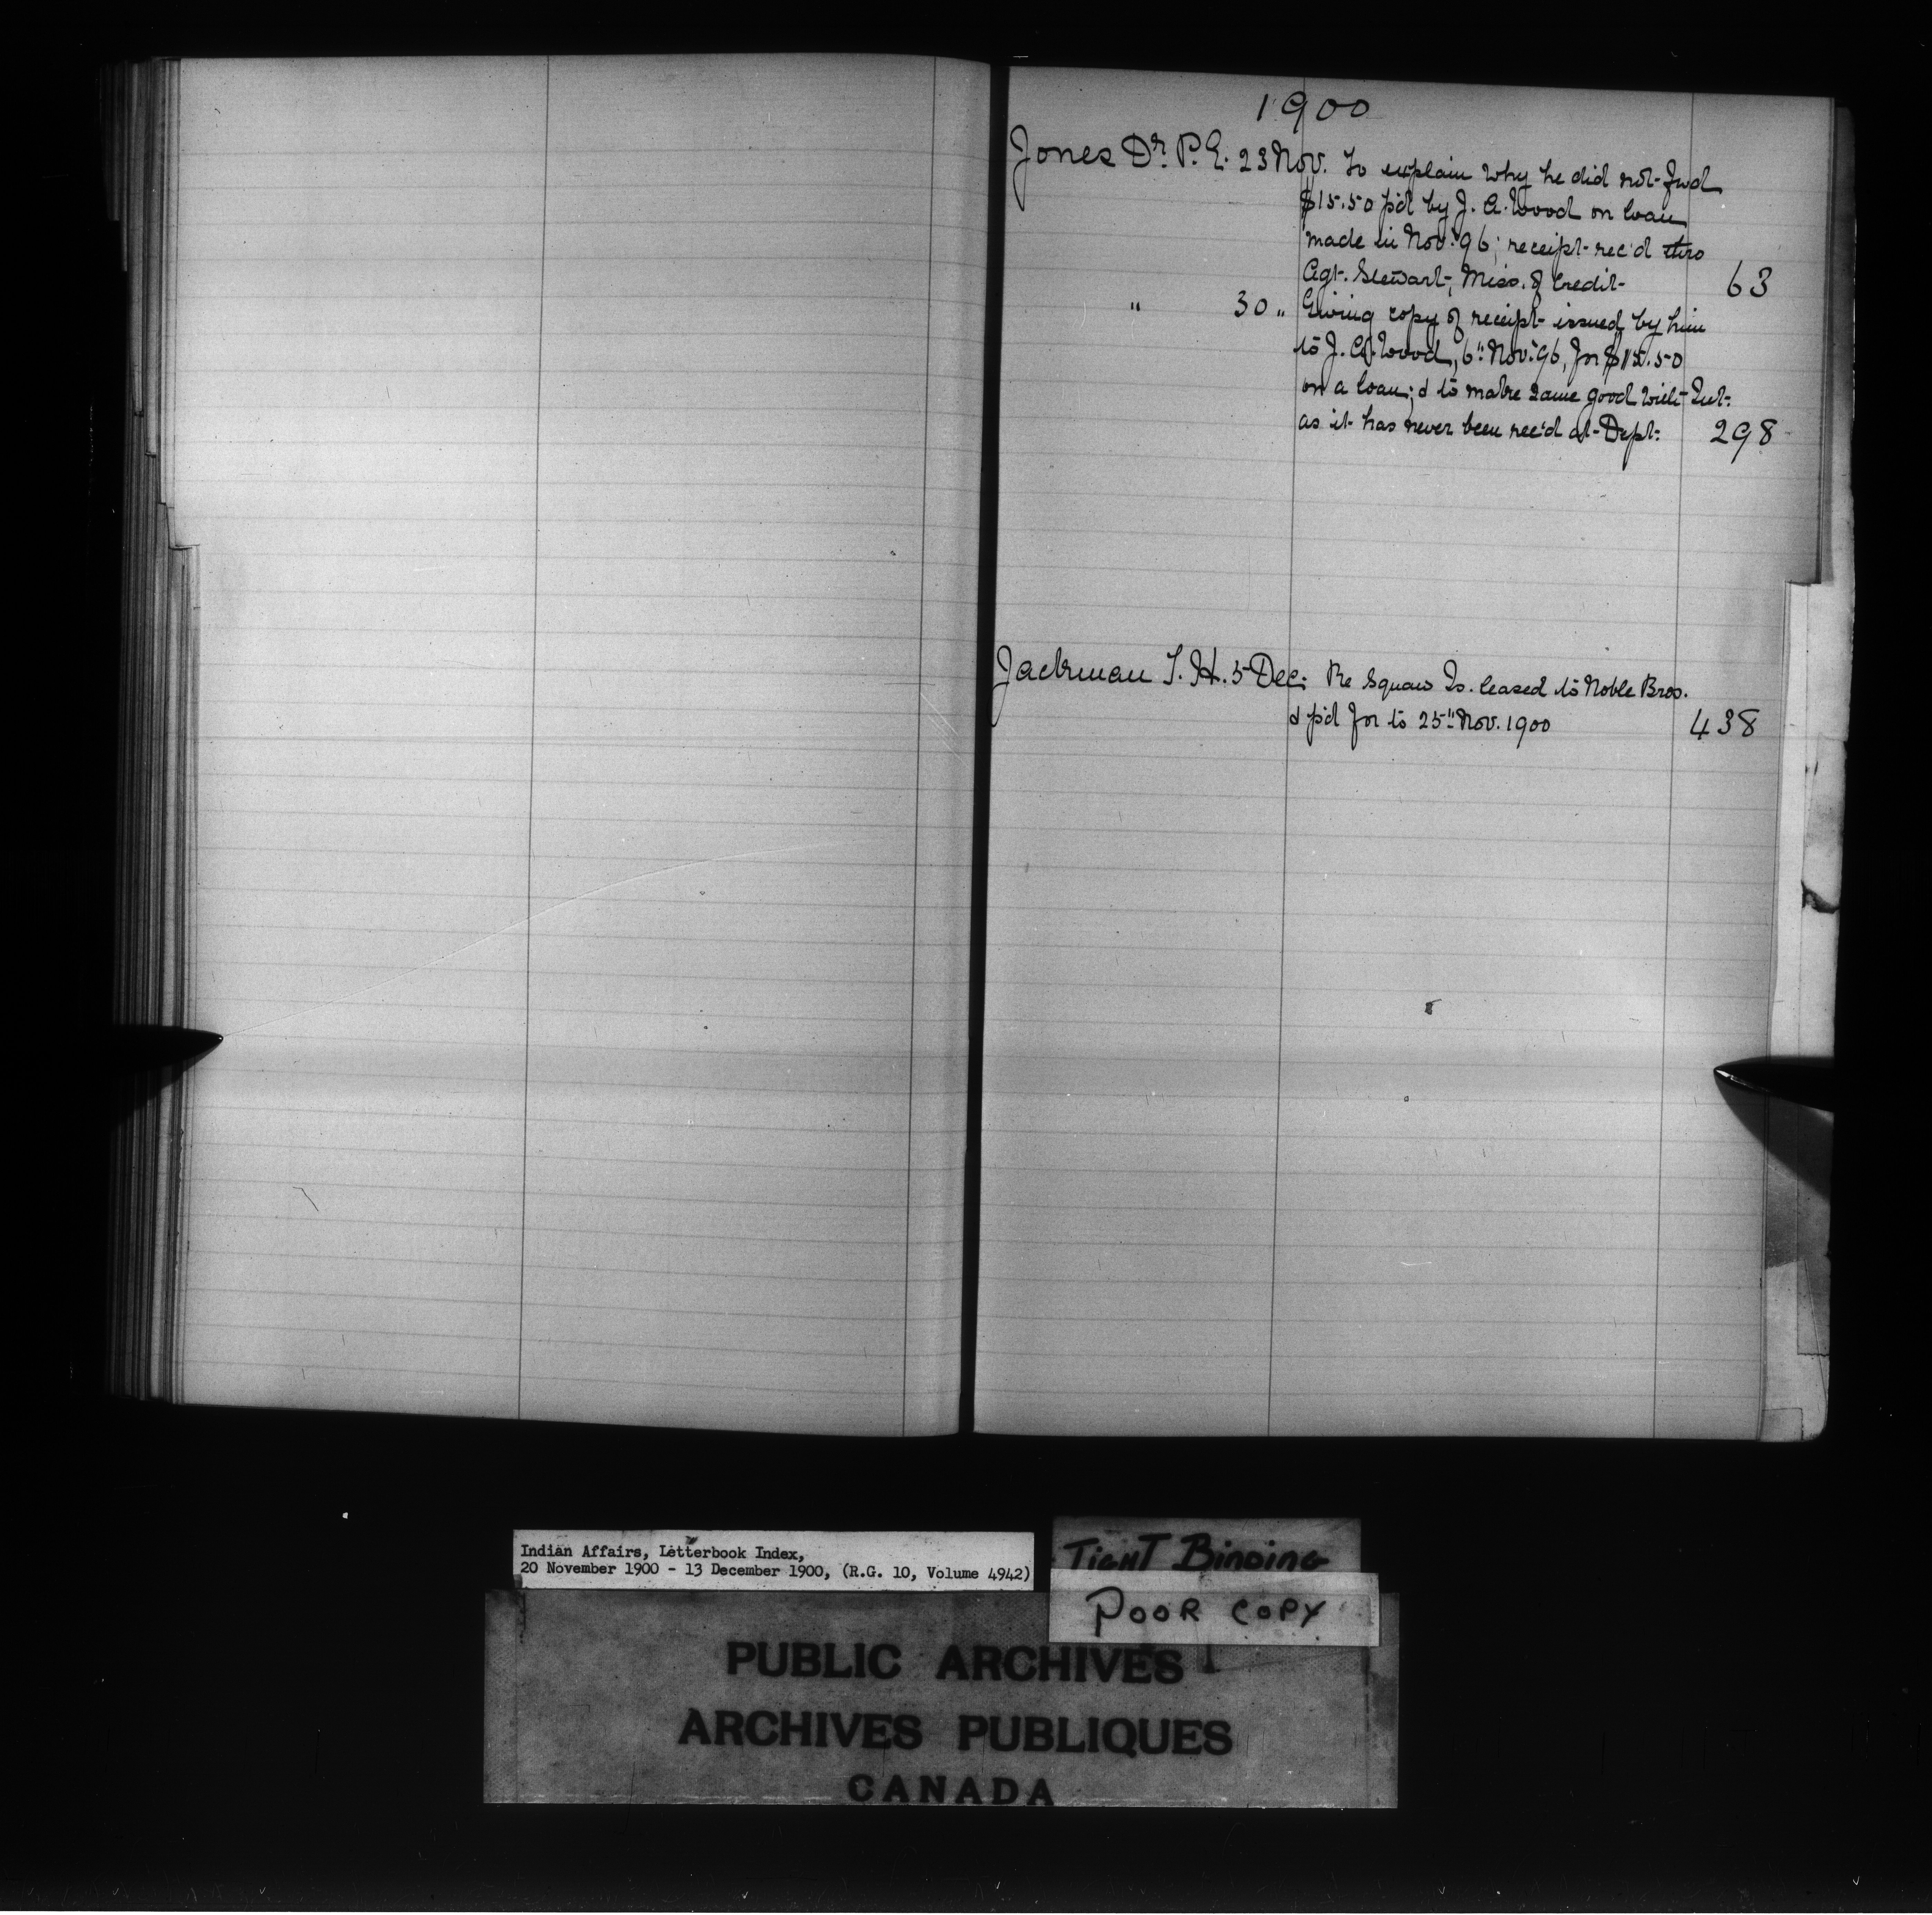 1900
Jones Dr. P. E. 23 Nov. To explain why he did not fwd
$15.50 p'd by J. A. Wood on loan
made in Nov. '96; receipt rec'd thro
Agt. Stewart, Miss. of Credit 63
" 30 " Giving copy of receipt issued by him
to J. A. Wood, 6" Nov. '96, for $15.50
on a loan; & to make same good with Int.
as it has never been rec'd at Dept. 298
Jackman T. H. 5 Dec. Re Squaw Is. leased to Noble Bros.
& p'd for to 25" Nov. 1900 438
Indian Affairs, Letterbook Index,
20 November 1900 - 13 December 1900, (R.G. 10, Volume 4942)
TIGHT BINDING
POOR COPY
PUBLIC ARCHIVES
ARCHIVES PUBLIQUES
CANADA